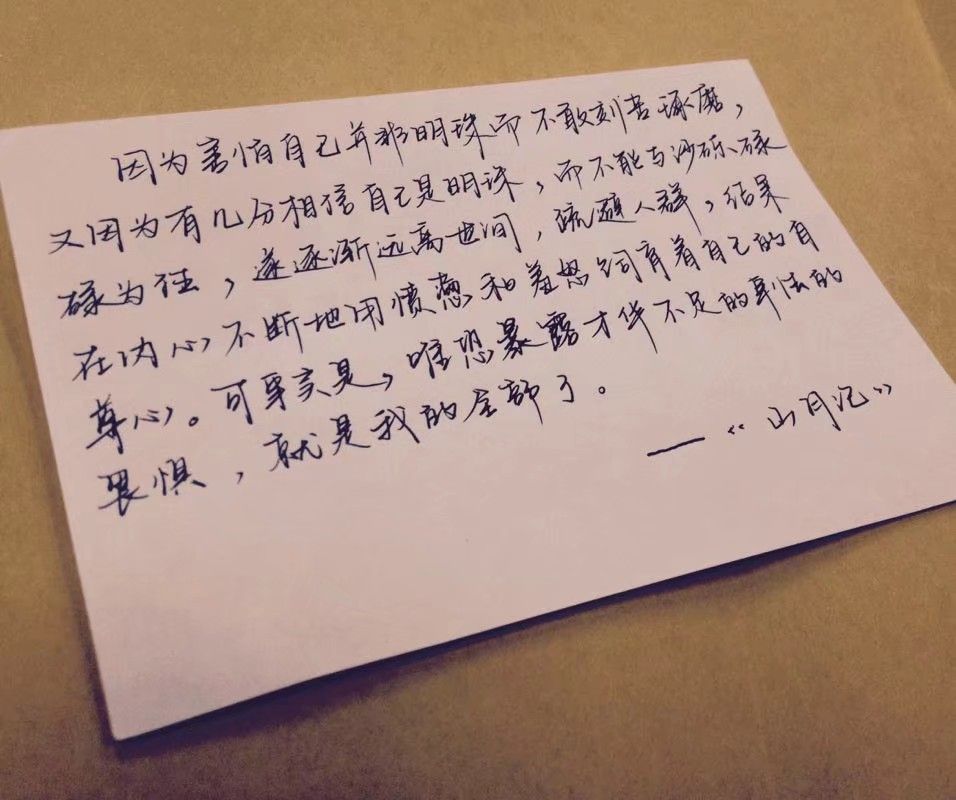 因为害怕自己并非明珠而不敢刻苦琢磨，
又因为有几分相信自己是明珠，而不能与沙砾碌
碌为伍，遂逐渐远离世间，疏避人群，结果
在内心不断地用愤懑和羞怒饲育着自己的自
尊心。可事实是，唯恐暴露才华不足的卑怯的
畏惧，就是我的全部了。
——《山月记》